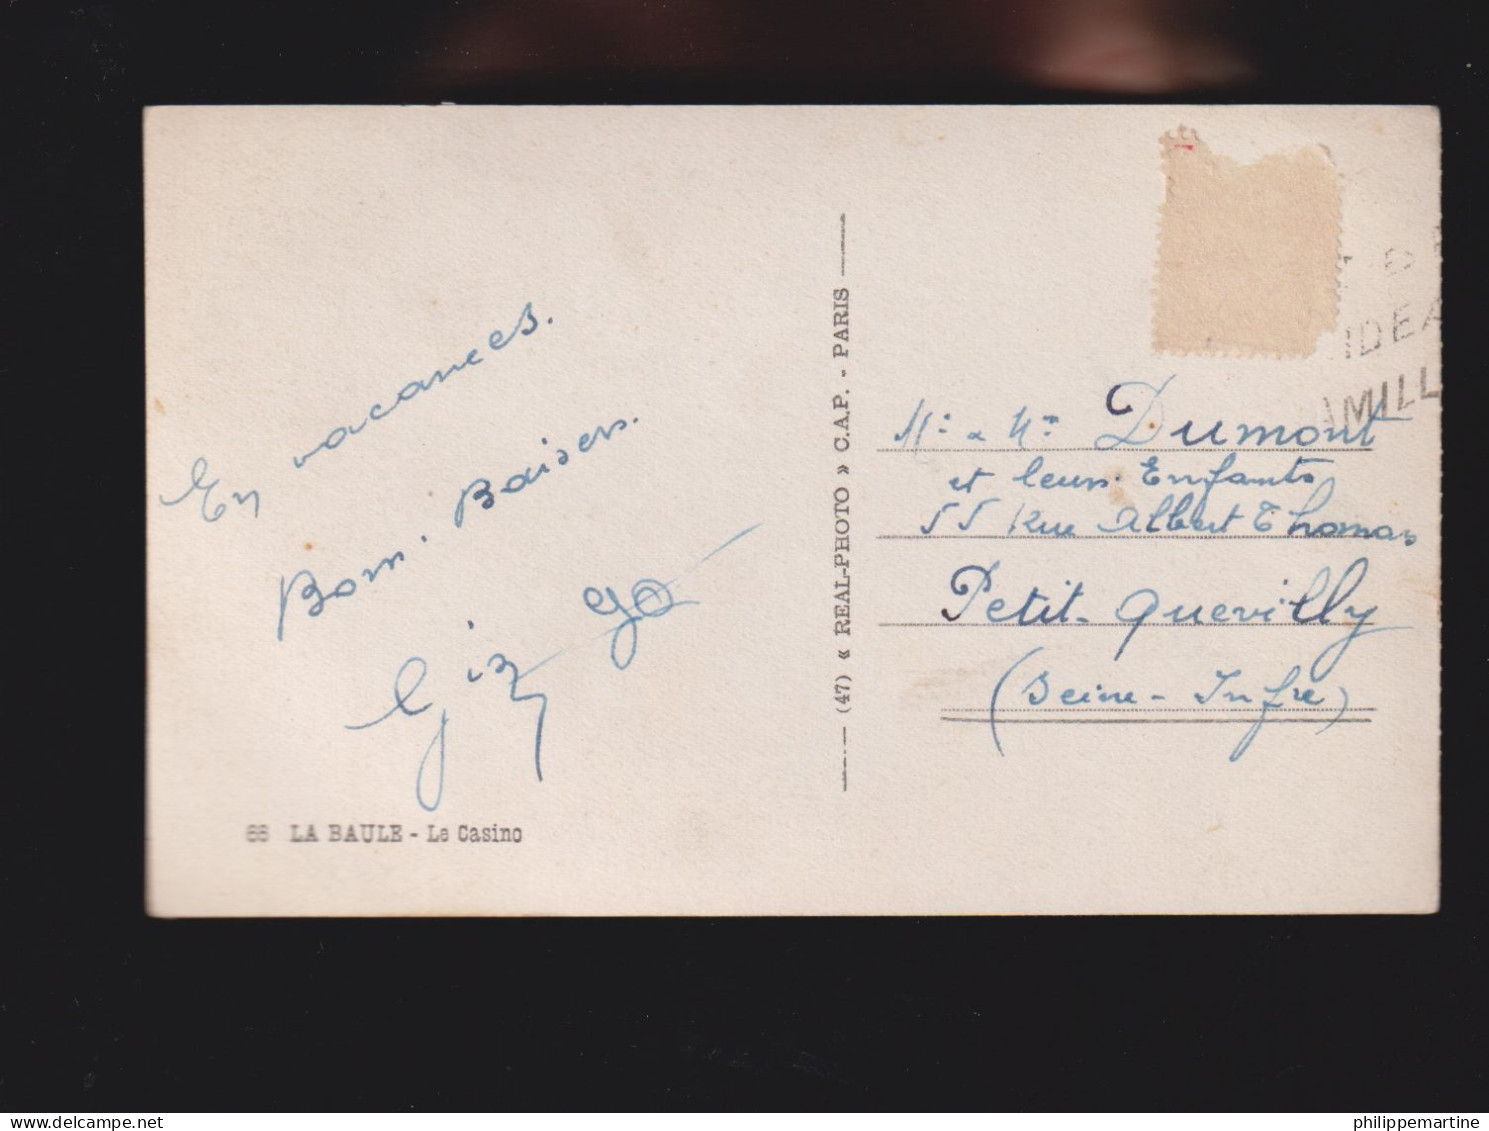 En vacances.
Bons. Baisers.
66 LA BAULE - Le Casino
(47) « REAL-PHOTO » C.A.P. - PARIS
IDEA
AMILL
Mr & Me Dumont
et leurs Enfants
55 Rue Albert Thomas
Petit-Quevilly
(Seine-Infre)
delcampe.net
philippemartine